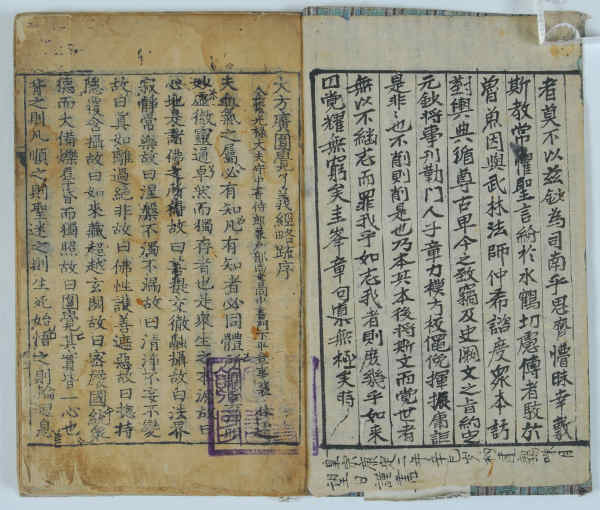 者莫不以茲鈔為司南乎思齊懵昧幸裁
斯教常懼聖言紛於水鶴切慮傳者駁於
魯魚因與武林法師仲希諮度衆本訪
對輿典循尊古卑今之致竊及史闕文之旨約定
元鈔將事刊勒門人子章力機方校僶俛揮振庸詎
是非也不削則削是也乃本其本後將斯文而覺世者
無以不繼志而罪我乎如志我者則庶幾乎如來
覺耀無窮矣圭峯章句稟無極矣時
皇宋康定二年辛巳歲月
望日謹書
大方廣圓覺了義經略疏序
金紫光祿大夫守中書侍郎兼戶部尚書同中書門下平章事裴休述
夫血氣之屬必有知凡有知者必同體所謂真淨明
妙虛徹靈通卓然而獨存者也是衆生之本源故曰
心地是諸佛之所得故曰菩提交徹融攝故曰法界
寂靜常樂故曰涅槃不濁不漏故曰清淨不妄不變
故曰真如離過絕非故曰佛性護善遮惡故曰捴持
隱覆含攝故曰如來藏超越玄閟故曰密嚴國統衆
德而大備爍羣昏而獨照故曰圓覺其實皆一心也
背之則凡順之則聖迷之則生死始悟之則輪廻息